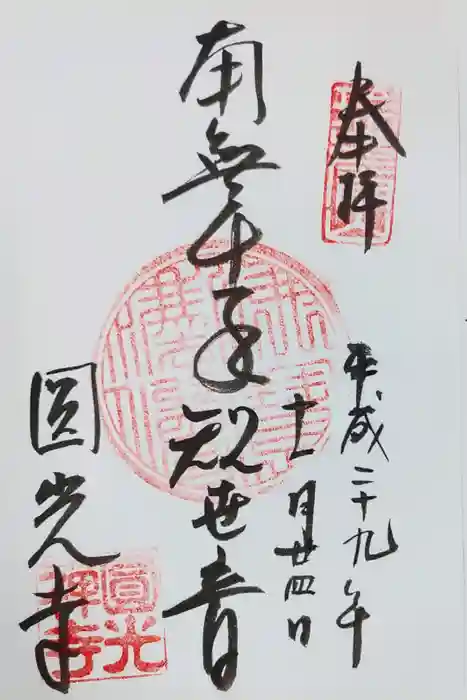 奉拝
平成二十九年
十一月廿四日
南無千手観世音
圓光寺